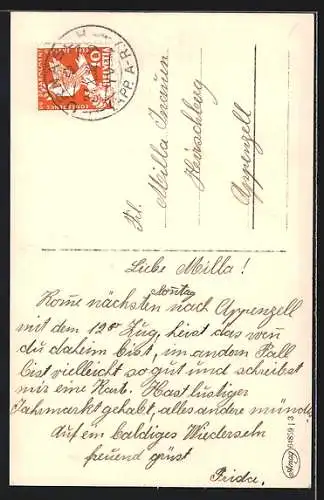 Frl. Milla Inauen
Hirschberg
Appenzell
Liebe Milla!
Montag
Kome nächsten nach Appenzell
mit dem 12⁰⁰ Zug, heist das wen
du daheim bist, im andern Fall
bist vielleicht so gut und schreibst
mir eine Karte. Hast lustiger
Jahrmarkt gehabt, alles andere mündl.
auf ein baldiges Wiedersehn
freuend grüst
Frida.
HELVETIA
10